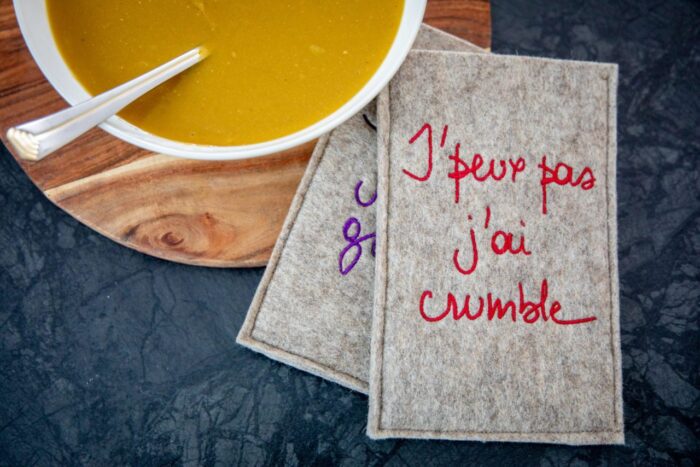 J'peux pas
j'ai
crumble